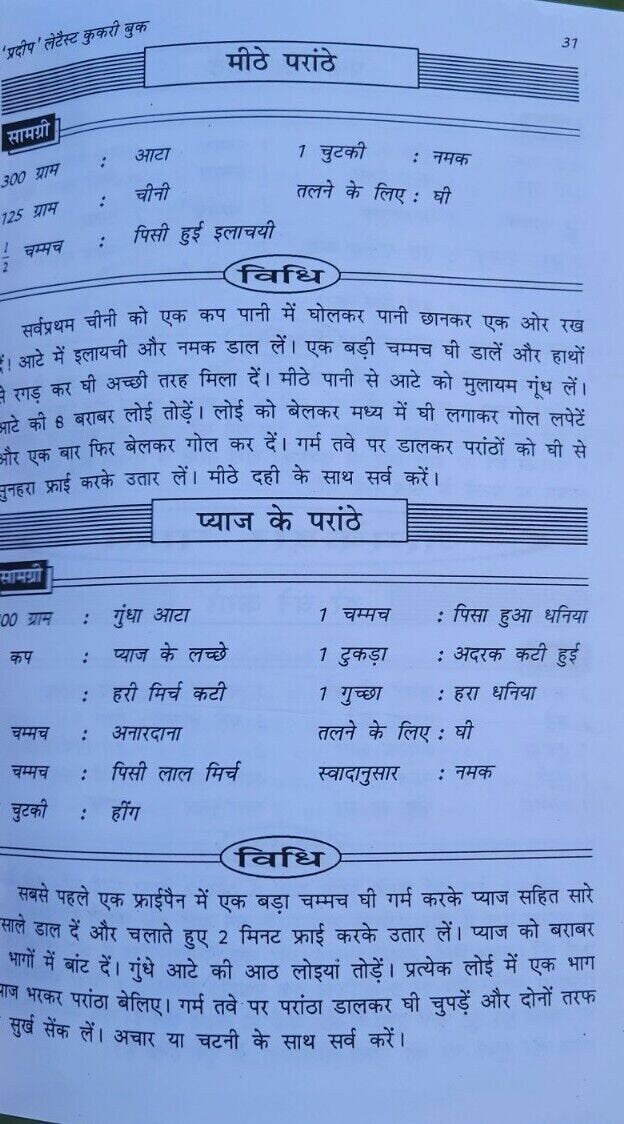 'प्रदीप' लेटैस्ट कुकरी बुक
31
मीठे परांठे
सामग्री
300 ग्राम : आटा 1 चुटकी : नमक
125 ग्राम : चीनी तलने के लिए : घी
1/2 चम्मच : पिसी हुई इलाचयी
विधि
सर्वप्रथम चीनी को एक कप पानी में घोलकर पानी छानकर एक ओर रख
दें। आटे में इलायची और नमक डाल लें। एक बड़ी चम्मच घी डालें और हाथों
से रगड़ कर घी अच्छी तरह मिला दें। मीठे पानी से आटे को मुलायम गूंध लें।
आटे की 8 बराबर लोई तोड़ें। लोई को बेलकर मध्य में घी लगाकर गोल लपेटें
और एक बार फिर बेलकर गोल कर दें। गर्म तवे पर डालकर परांठों को घी से
सुनहरा फ्राई करके उतार लें। मीठे दही के साथ सर्व करें।
प्याज के परांठे
सामग्री
00 ग्राम : गुंधा आटा 1 चम्मच : पिसा हुआ धनिया
कप : प्याज के लच्छे 1 टुकड़ा : अदरक कटी हुई
: हरी मिर्च कटी 1 गुच्छा : हरा धनिया
चम्मच : अनारदाना तलने के लिए : घी
चम्मच : पिसी लाल मिर्च स्वादानुसार : नमक
चुटकी : हींग
विधि
सबसे पहले एक फ्राईपैन में एक बड़ा चम्मच घी गर्म करके प्याज सहित सारे
साले डाल दें और चलाते हुए 2 मिनट फ्राई करके उतार लें। प्याज को बराबर
भागों में बांट दें। गुंधे आटे की आठ लोइयां तोड़ें। प्रत्येक लोई में एक भाग
याज भरकर परांठा बेलिए। गर्म तवे पर परांठा डालकर घी चुपड़ें और दोनों तरफ
सुर्ख सेंक लें। अचार या चटनी के साथ सर्व करें।